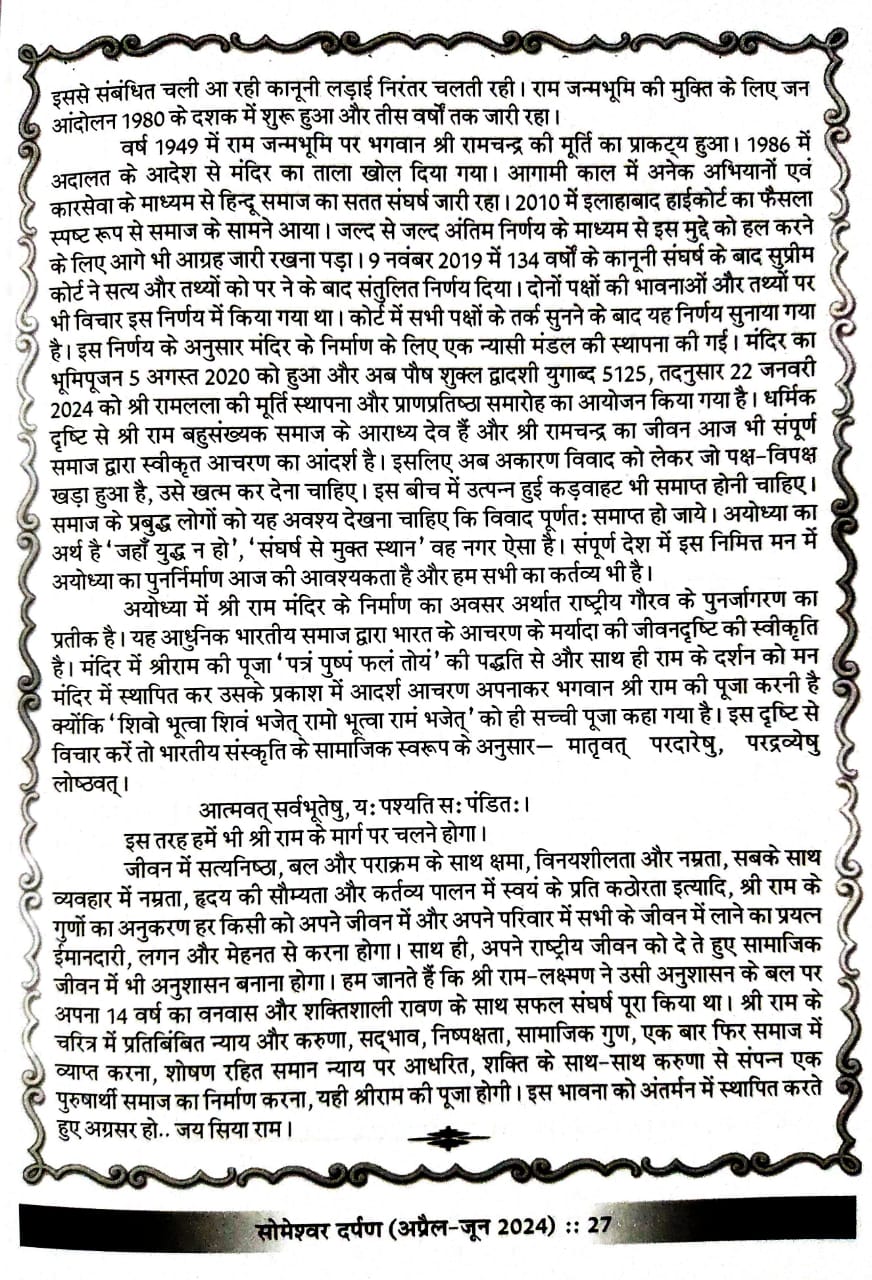 इससे संबंधित चली आ रही कानूनी लड़ाई निरंतर चलती रही। राम जन्मभूमि की मुक्ति के लिए जन
आंदोलन 1980 के दशक में शुरू हुआ और तीस वर्षों तक जारी रहा।
वर्ष 1949 में राम जन्मभूमि पर भगवान श्री रामचन्द्र की मूर्ति का प्राकट्य हुआ। 1986 में
अदालत के आदेश से मंदिर का ताला खोल दिया गया। आगामी काल में अनेक अभियानों एवं
कारसेवा के माध्यम से हिन्दू समाज का सतत संघर्ष जारी रहा। 2010 में इलाहाबाद हाईकोर्ट का फैसला
स्पष्ट रूप से समाज के सामने आया। जल्द से जल्द अंतिम निर्णय के माध्यम से इस मुद्दे को हल करने
के लिए आगे भी आग्रह जारी रखना पड़ा। 9 नवंबर 2019 में 134 वर्षों के कानूनी संघर्ष के बाद सुप्रीम
कोर्ट ने सत्य और तथ्यों को पर ने के बाद संतुलित निर्णय दिया। दोनों पक्षों की भावनाओं और तथ्यों पर
भी विचार इस निर्णय में किया गया था। कोर्ट में सभी पक्षों के तर्क सुनने के बाद यह निर्णय सुनाया गया
है। इस निर्णय के अनुसार मंदिर के निर्माण के लिए एक न्यासी मंडल की स्थापना की गई। मंदिर का
भूमिपूजन 5 अगस्त 2020 को हुआ और अब पौष शुक्ल द्वादशी युगाब्द 5125, तदनुसार 22 जनवरी
2024 को श्री रामलला की मूर्ति स्थापना और प्राणप्रतिष्ठा समारोह का आयोजन किया गया है। धर्मिक
दृष्टि से श्री राम बहुसंख्यक समाज के आराध्य देव हैं और श्री रामचन्द्र का जीवन आज भी संपूर्ण
समाज द्वारा स्वीकृत आचरण का आंदर्श है। इसलिए अब अकारण विवाद को लेकर जो पक्ष-विपक्ष
खड़ा हुआ है, उसे खत्म कर देना चाहिए। इस बीच में उत्पन्न हुई कड़वाहट भी समाप्त होनी चाहिए।
समाज के प्रबुद्ध लोगों को यह अवश्य देखना चाहिए कि विवाद पूर्णत: समाप्त हो जाये। अयोध्या का
अर्थ है 'जहाँ युद्ध न हो', 'संघर्ष से मुक्त स्थान' वह नगर ऐसा है। संपूर्ण देश में इस निमित्त मन में
अयोध्या का पुनर्निर्माण आज की आवश्यकता है और हम सभी का कर्तव्य भी है।
अयोध्या में श्री राम मंदिर के निर्माण का अवसर अर्थात राष्ट्रीय गौरव के पुनर्जागरण का
प्रतीक है। यह आधुनिक भारतीय समाज द्वारा भारत के आचरण के मर्यादा की जीवनदृष्टि की स्वीकृति
है। मंदिर में श्रीराम की पूजा 'पत्रं पुष्पं फलं तोयं' की पद्धति से और साथ ही राम के दर्शन को मन
मंदिर में स्थापित कर उसके प्रकाश में आदर्श आचरण अपनाकर भगवान श्री राम की पूजा करनी है
क्योंकि 'शिवो भूत्वा शिवं भजेत् रामो भूत्वा रामं भजेत्' को ही सच्ची पूजा कहा गया है। इस दृष्टि से
विचार करें तो भारतीय संस्कृति के सामाजिक स्वरूप के अनुसार– मातृवत् परदारेषु, परद्रव्येषु
लोष्ठवत्।
आत्मवत् सर्वभूतेषु, य: पश्यति स: पंडित:।
इस तरह हमें भी श्री राम के मार्ग पर चलने होगा।
जीवन में सत्यनिष्ठा, बल और पराक्रम के साथ क्षमा, विनयशीलता और नम्रता, सबके साथ
व्यवहार में नम्रता, हृदय की सौम्यता और कर्तव्य पालन में स्वयं के प्रति कठोरता इत्यादि, श्री राम के
गुणों का अनुकरण हर किसी को अपने जीवन में और अपने परिवार में सभी के जीवन में लाने का प्रयत्न
ईमानदारी, लगन और मेहनत से करना होगा। साथ ही, अपने राष्ट्रीय जीवन को दे ते हुए सामाजिक
जीवन में भी अनुशासन बनाना होगा। हम जानते हैं कि श्री राम-लक्ष्मण ने उसी अनुशासन के बल पर
अपना 14 वर्ष का वनवास और शक्तिशाली रावण के साथ सफल संघर्ष पूरा किया था। श्री राम के
चरित्र में प्रतिबिंबित न्याय और करुणा, सद्‌भाव, निष्पक्षता, सामाजिक गुण, एक बार फिर समाज में
व्याप्त करना, शोषण रहित समान न्याय पर आधरित, शक्ति के साथ-साथ करुणा से संपन्न एक
पुरुषार्थी समाज का निर्माण करना, यही श्रीराम की पूजा होगी। इस भावना को अंतर्मन में स्थापित करते
हुए अग्रसर हो.. जय सिया राम।
सोमेश्वर दर्पण (अप्रैल-जून 2024) :: 27